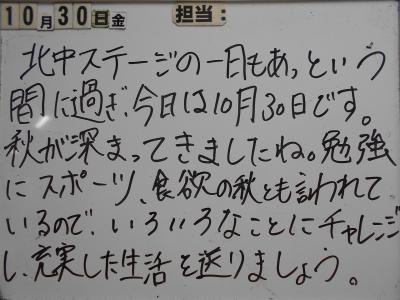 10月30日金 担当:
北中ステージの一日もあっという
間に過ぎ、今日は10月30日です。
秋が深まってきましたね。勉強
にスポーツ、食欲の秋とも言われて
いるので、いろいろなことにチャレンジ
し、充実した生活を送りましょう。